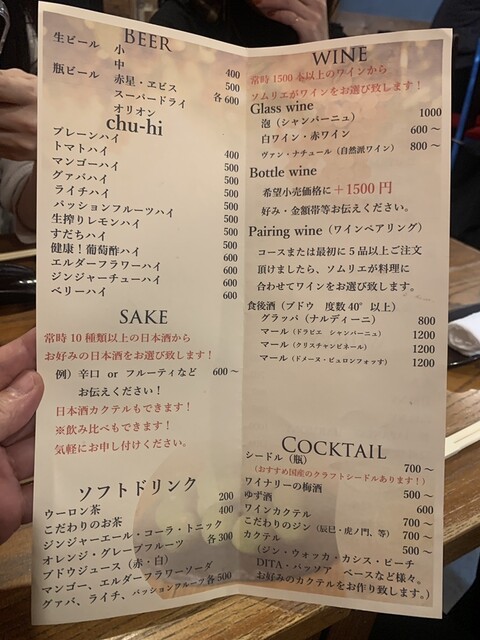 BEER
生ビール 小 400
中 500
瓶ビール 赤星・ヱビス
スーパードライ 各600
オリオン
chu-hi
プレーンハイ 400
トマトハイ 500
マンゴーハイ 500
グァバハイ 500
ライチハイ 500
パッションフルーツハイ 500
生搾りレモンハイ 500
すだちハイ 500
健康!葡萄酢ハイ 500
エルダーフラワーハイ 600
ジンジャーチューハイ 600
ベリーハイ 600
SAKE
常時10種類以上の日本酒から
お好みの日本酒をお選び致します!
例)辛口 or フルーティなど 600〜
お伝えください!
日本酒カクテルもできます!
※飲み比べもできます!
気軽にお申し付けください。
ソフトドリンク
ウーロン茶 200
こだわりのお茶 400
ジンジャーエール・コーラ・トニック
オレンジ・グレープフルーツ 各300
ブドウジュース(赤・白)
マンゴー、エルダーフラワーソーダ
グァバ、ライチ、パッションフルーツ各500
WINE
常時1500本以上のワインから
ソムリエがワインをお選び致します!
Glass wine
泡(シャンパーニュ) 1000
白ワイン・赤ワイン 600〜
ヴァン・ナチュール(自然派ワイン) 800〜
Bottle wine
希望小売価格に+1500円
好み・金額帯等お伝えください。
Pairing wine(ワインペアリング)
コースまたは最初に5品以上ご注文
頂けましたら、ソムリエが料理に
合わせてワインをお選び致します。
食後酒(ブドウ 度数40°以上)
グラッパ(ナルディーニ) 800
マール(ドラピエ シャンパーニュ) 1200
マール(クリスチャンビネール) 1200
マール(ドメーヌ・ビュロンフォッす) 1200
COCKTAIL
シードル(瓶) 700〜
(おすすめ国産のクラフトシードルあります!)
ワイナリーの梅酒 500〜
ゆず酒 600
ワインカクテル 700〜
こだわりのジン(辰巳・虎ノ門、等) 700〜
カクテル 500〜
(ジン・ウォッカ・カシス・ピーチ
DITA・パッソア ベースなど様々。
お好みのカクテルをお作り致します。)